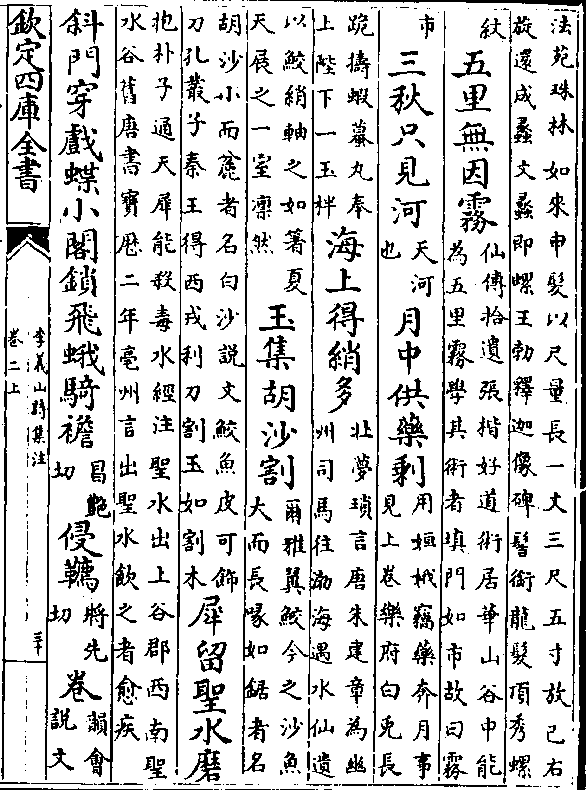 法苑珠林如來申髮以尺量長一丈三尺五寸放已右
旋還成蠡文蠡即螺王勃釋迦像碑髻銜龍髮頂秀螺
紋
五里無因霧
仙傳拾遺張揩好道術居華山谷中能
為五里霧學其術者填門如市故曰霧
市
三秋只見河
天河
也
月中供藥剩
用姮娥竊藥奔月事
見上卷樂府白兎長
跪擣蝦蟇丸奉
上陛下一玉柈
海上得綃多
北夢瑣言唐朱建章為幽
州司馬往渤海遇水仙遺
以鮫綃軸之如箸夏
天展之一室凛然
玉集胡沙割
爾雅翼鮫今之沙魚
大而長喙如鋸者名
胡沙小而麄者名白沙說文鮫魚皮可飾
刀孔叢子秦王得西戎利刀割玉如割木
犀留聖水磨
抱朴子通天犀能殺毒水經注聖水出上谷郡西南聖
水谷舊唐書寳厯二年亳州言出聖水飲之者愈疾
斜門穿戲蝶小閣鎖飛蛾騎襜
昌艶
切
侵韉
將先
切
卷
韻會
說文
欽定四庫全書
李義山詩集注
卷二上
三十